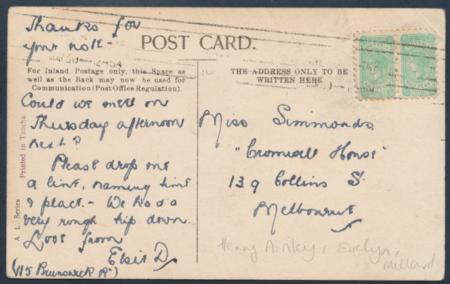 Thanks for
your note -
POST CARD.
For Inland Postage only, this Space as
well as the Back may now be used for
Communication (Post Office Regulation).
THE ADDRESS ONLY TO BE
WRITTEN HERE
Could we meet on
Thursday afternoon
next?
Please drop me
a line, naming time
& place - We had a
very rough trip down
Love from
Elsie D.
(115 Brunswick Rd)
Miss Simmonds
"Cromwell House"
139 Collins St
Melbourne
Henry Ainley & Evelyn
Millard
A. L. Series
Printed in